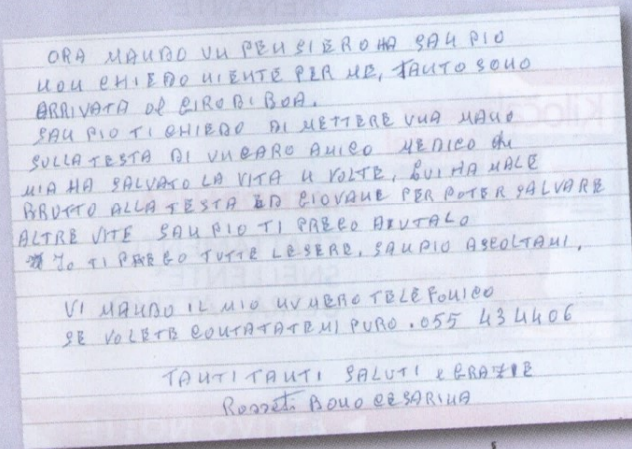 ORA MANDO UN PENSIERO HA SAN PIO
NON CHIEDO NIENTE PER ME, TANTO SONO
ARRIVATA AL GIRO DI BOA.
SAN PIO TI CHIEDO DI METTERE UNA MANO
SULLA TESTA DI UN CARO AMICO MEDICO CHE
MIA HA SALVATO LA VITA 4 VOLTE, LUI HA MALE
BRUTTO ALLA TESTA ED GIOVANE PER POTER SALVARE
ALTRE VITE SAN PIO TI PREGO AIUTALO
IO TI PREGO TUTTE LE SERE, SAN PIO ASCOLTAMI.
VI MANDO IL MIO NUMERO TELEFONICO
SE VOLETE CONTATATEMI PURO. 055 434406
TANTI TANTI SALUTI E GRAZIE
Rossetti BONO CESARINA
Kiloca